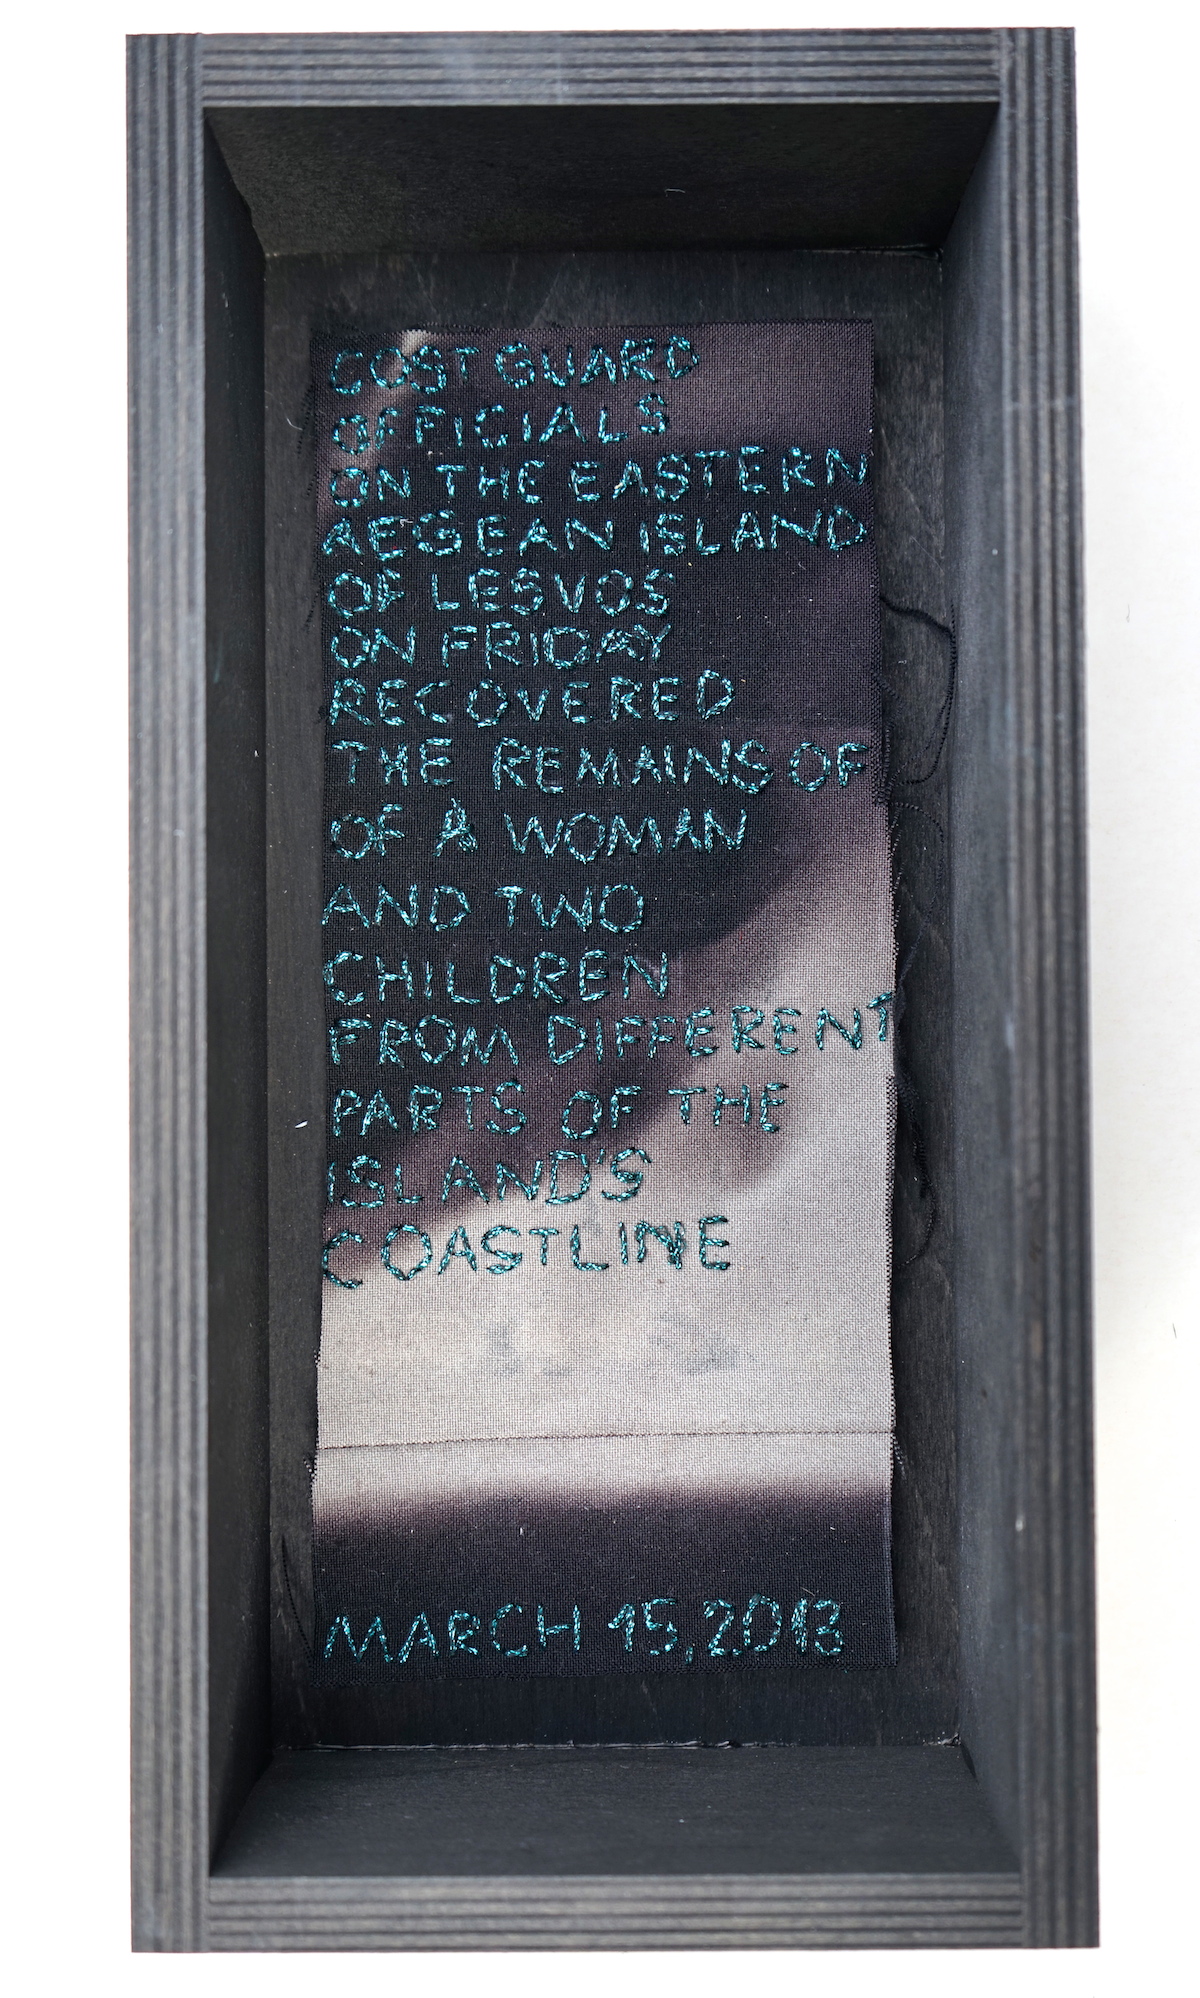 COST GUARD
OFFICIALS
ON THE EASTERN
AEGEAN ISLAND
OF LESVOS
ON FRIDAY
RECOVERED
THE REMAINS OF
OF A WOMAN
AND TWO
CHILDREN
FROM DIFFERENT
PARTS OF THE
ISLAND'S
COASTLINE
MARCH 15, 2013